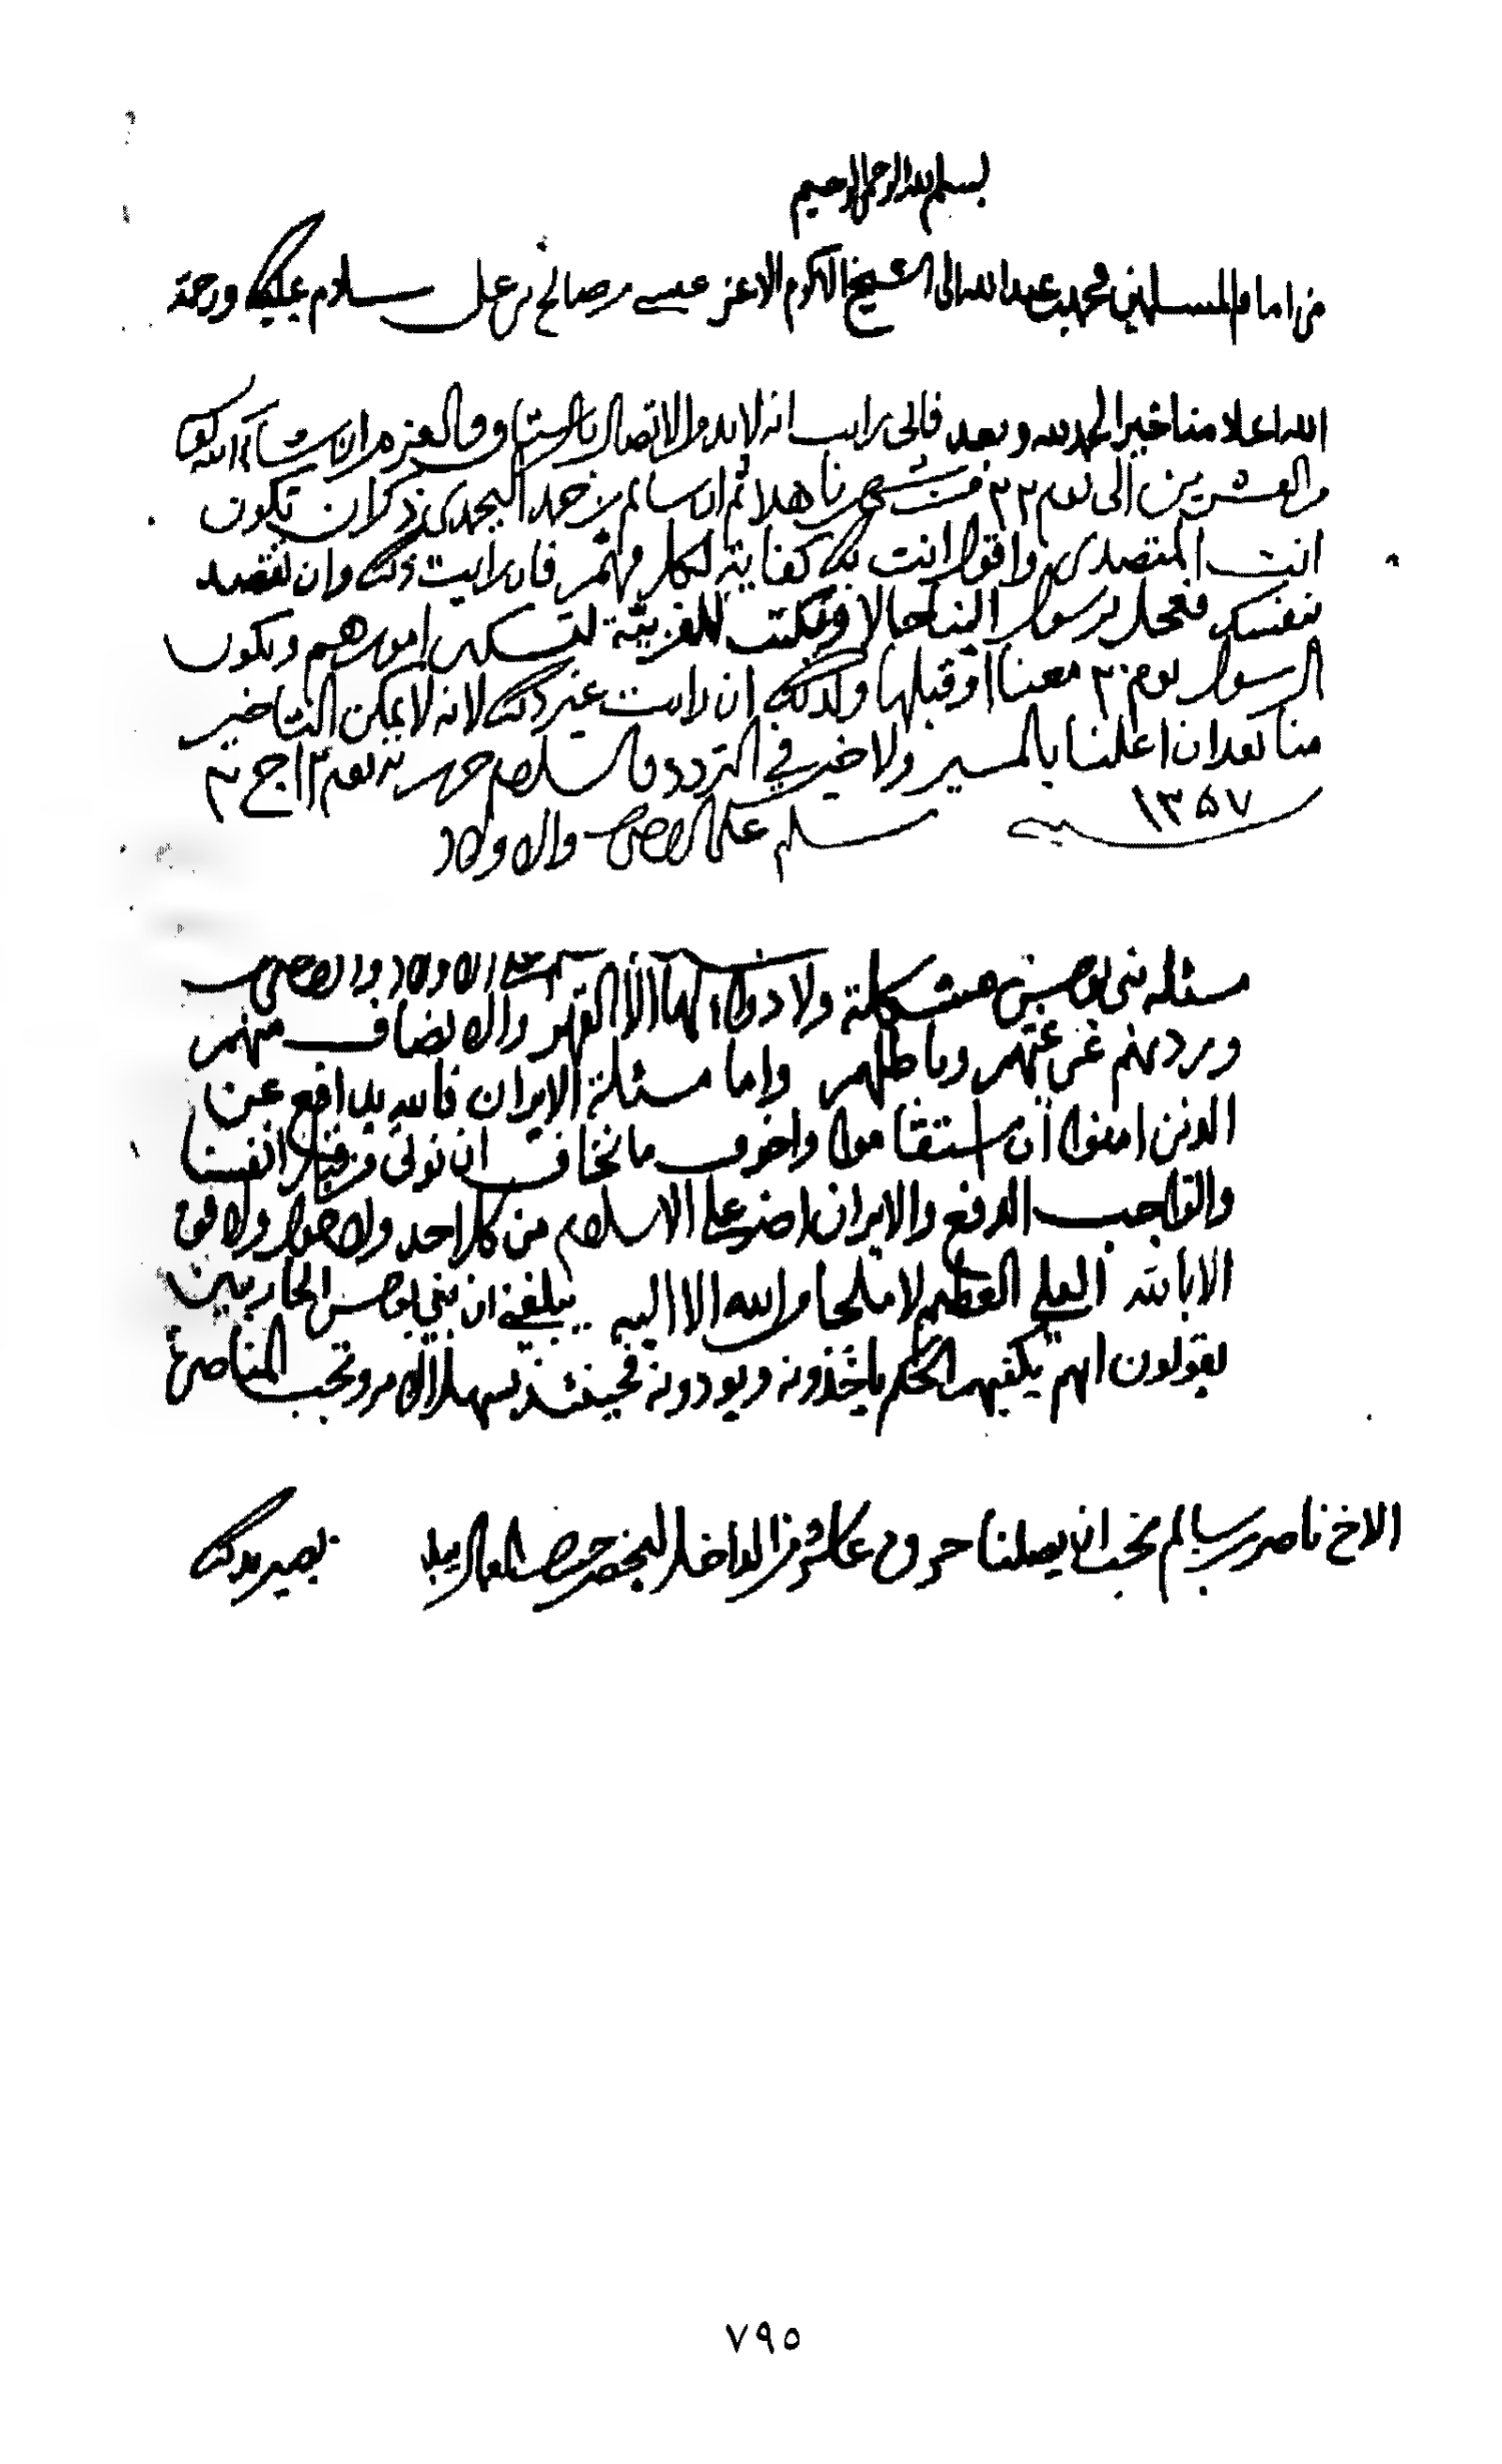 بسم الله الرحمن الرحيم
من امام المسلمين محمد بن عبدالله الى الشيخ الاكرم الاعز عيسى بن صالح بن علي سلام عليك ورحمة
الله اعلامنا خير الحمد لله وبعد فاني رايت انه لا بد من الاتصال بالرستاق والعزم ان شاء الله يكون
من العشرين الى يوم ٢٢ من شهرنا هذا ثم ان سالم بن حمد البحمدي ذكر ان تكون
انت المتصدي واقول انت بك كفاية لكل مهم فان رايت ذلك وان تقصد
بنفسك فعجل برسول الينا حالا ونكتب للغربية لتسكن امورهم ويكون
الرسول يوم ٢٠ معنا او قبلها وكذلك ان رايت غير ذلك لانه لا يمكن التاخير
منا بعد ان اعلنا بالمسير ولا خير في التردد والسلام حرر يوم ١٣ الحج سنة
١٣٥٧
سلم على الاصحاب والاولاد
مسئلة بني بوحسن مشكلة ولا دواء لها الا القهر والانصاف منهم
وردهم عن غيهم وباطلهم واما مسئلة الايران فالله يدافع عن
الذين امنوا ان استقاموا واخوف ما نخاف ان نؤتى من قبل انفسنا
والواجب الدفع والايران اضر على الاسلام من كل احد ولا حول ولا قوة
الا بالله العلي العظيم لا ملجا من الله الا اليه يبلغني ان بني بوحسن المحاربين
يقولون انهم يكفيهم الحكم ياخذونه ويودونه فحينئذ يسهل الامر وتجب المناصرة
الاخ ناصر بن سالم نحب ان يصلنا من الداخل
٧٩٥